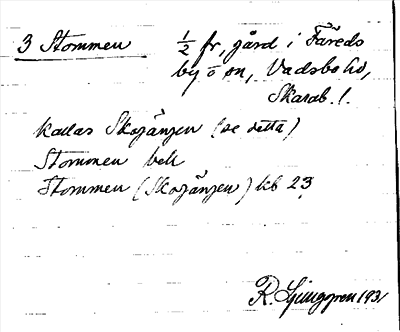 3 Stommen ½ fr, gård i Färeds
by o sn, Vadsbo hd,
Skarab. l.
kallas Skogängen (se detta)
Stommen beh
Stommen (Skogängen) kb 23
R. Ljunggren 1931